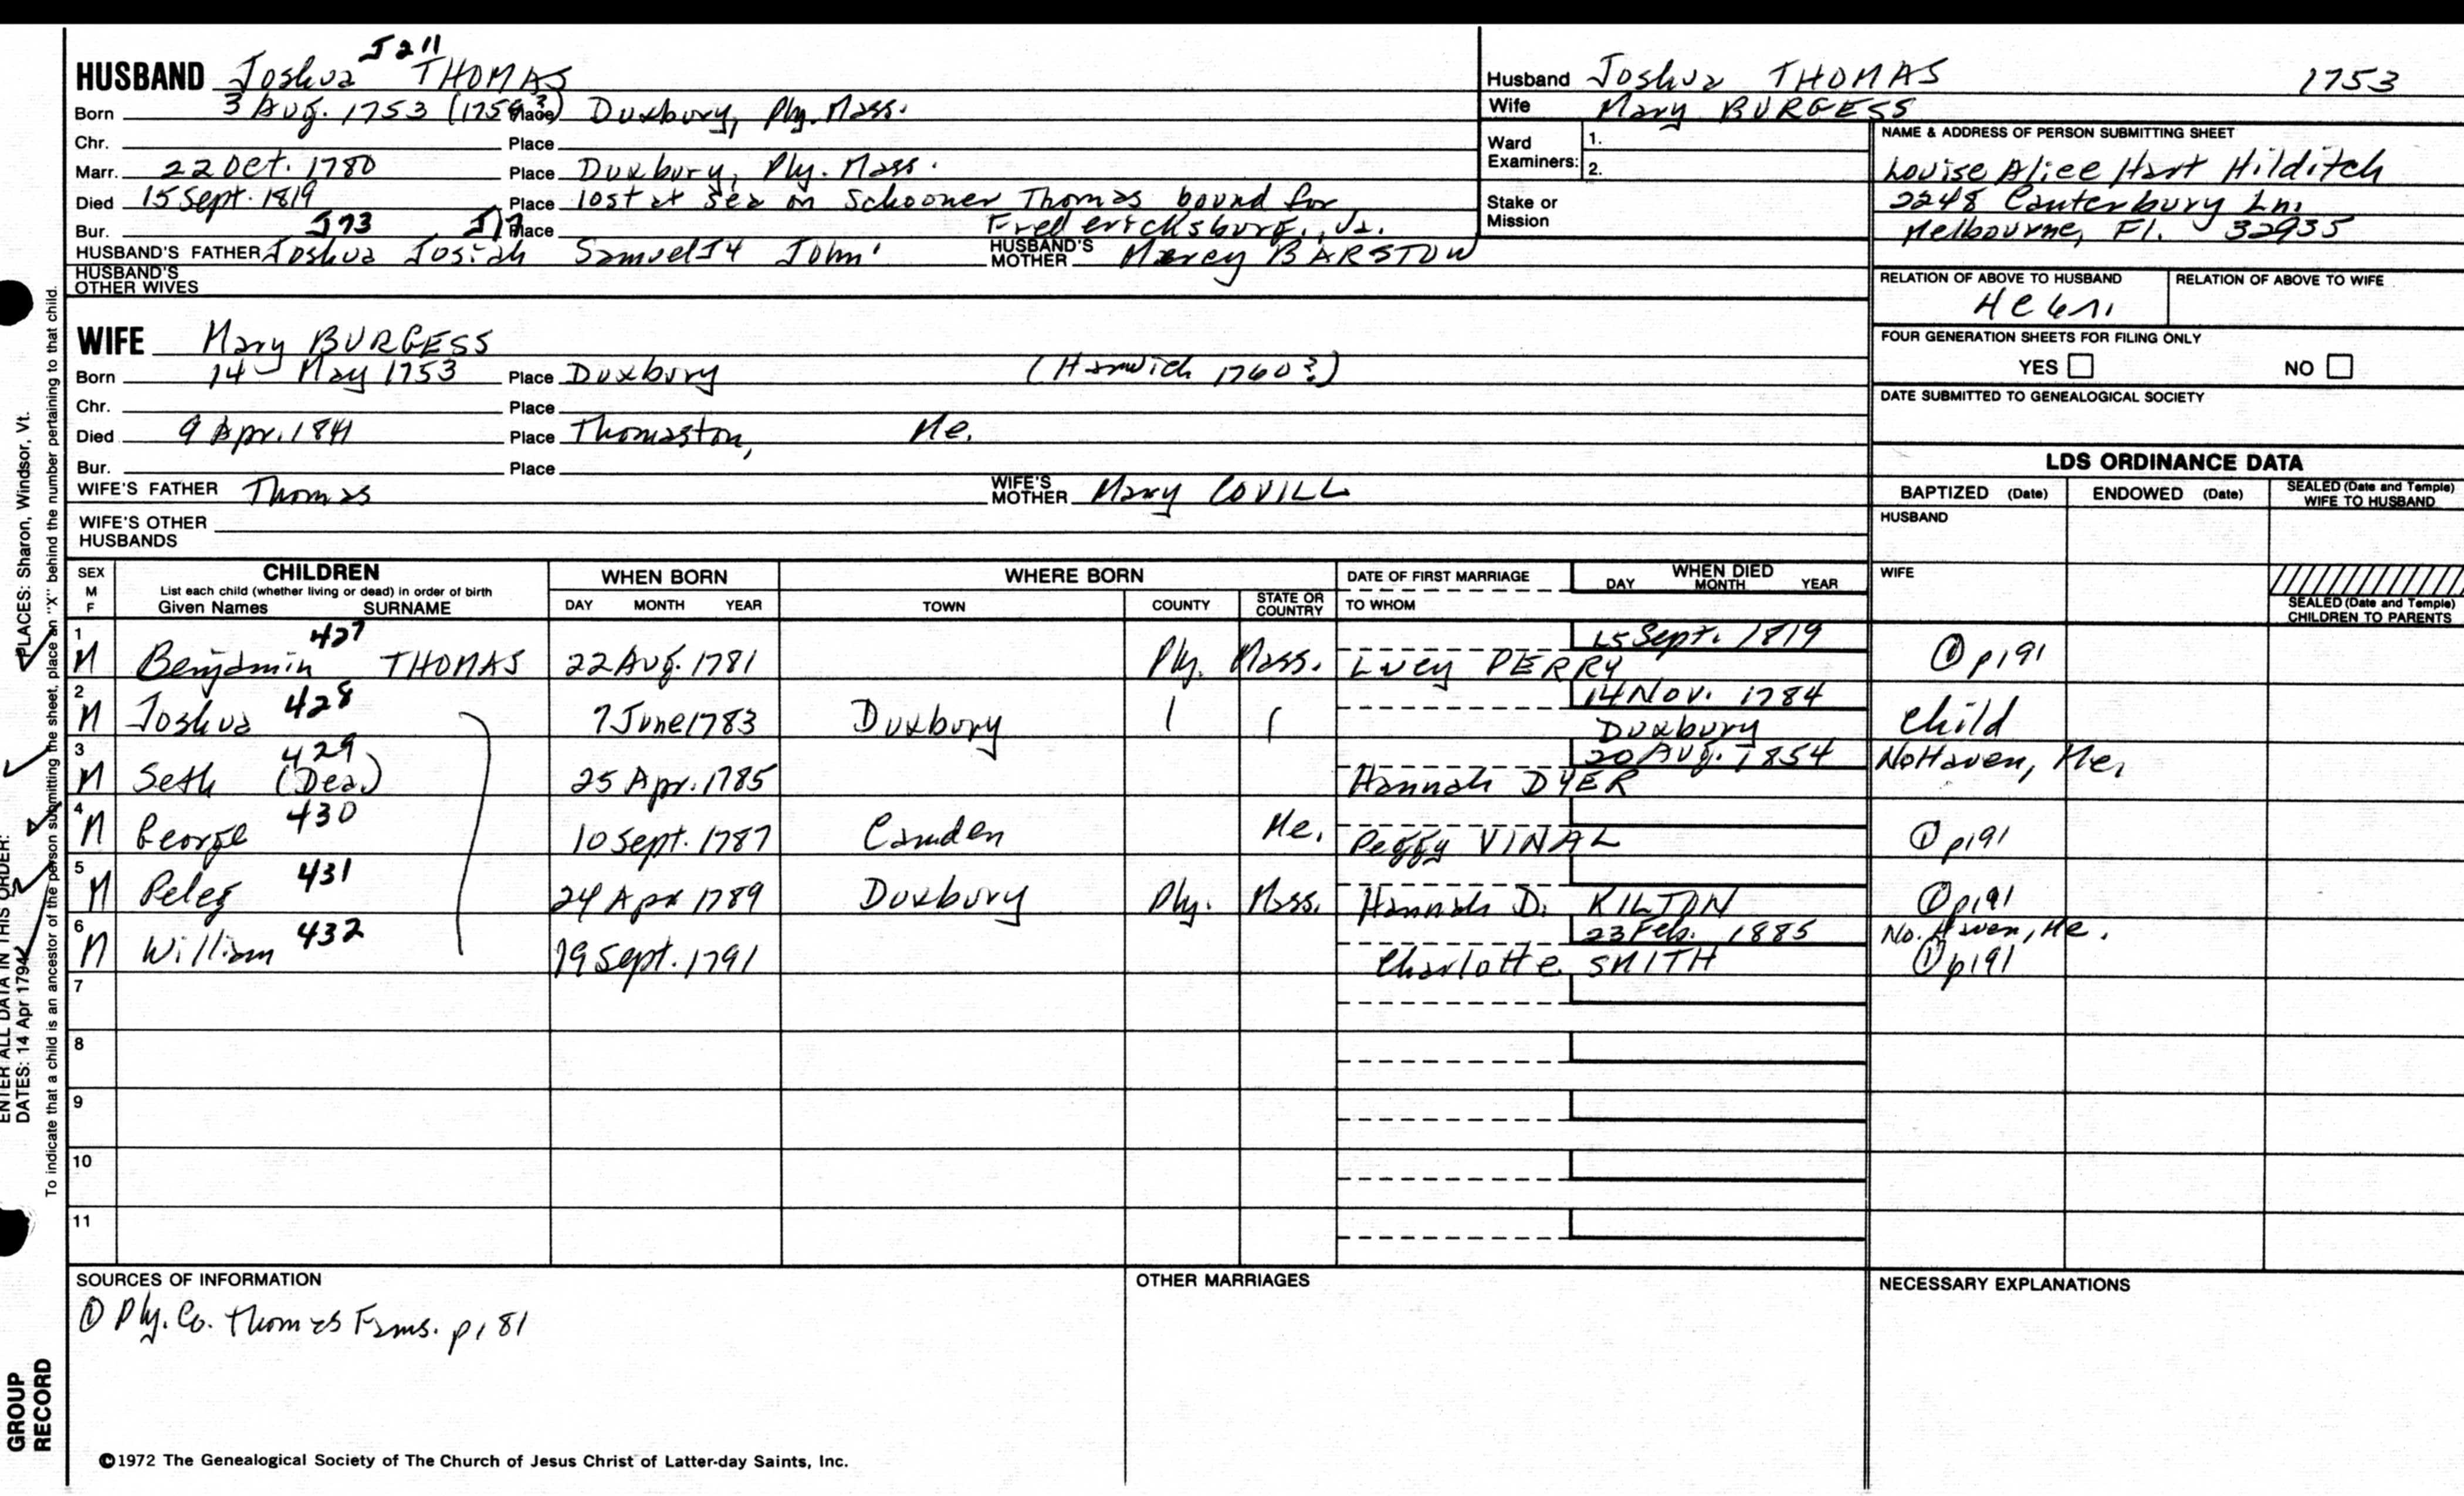 J211
HUSBAND Joshua THOMAS
Born 3 Aug. 1753 (1756?) Place Duxbury, Ply. Mass.
Chr. Place
Marr. 22 Oct. 1780 Place Duxbury, Ply. Mass.
Died 15 Sept. 1819 Place lost at sea on Schooner Thomas bound for
Bur. J73 J17 Place Fredericksburg, Va.
HUSBAND'S FATHER Joshua Josiah Samuel J4 John' HUSBAND'S MOTHER Mercy BARSTOW
HUSBAND'S OTHER WIVES
WIFE Mary BURGESS
Born 14 May 1753 Place Duxbury (Harwich 1760?)
Chr. Place
Died 9 Apr. 1841 Place Thomaston, Me.
Bur. Place
WIFE'S FATHER Thomas WIFE'S MOTHER Mary COVILL
WIFE'S OTHER HUSBANDS
Husband Joshua THOMAS 1753
Wife Mary BURGESS
Ward Examiners: 1.
2.
Stake or Mission
NAME & ADDRESS OF PERSON SUBMITTING SHEET
Louise Alice Hart Hilditch
2248 Canterbury Ln.
Melbourne, Fl. 32935
RELATION OF ABOVE TO HUSBAND RELATION OF ABOVE TO WIFE
FOUR GENERATION SHEETS FOR FILING ONLY
YES NO
DATE SUBMITTED TO GENEALOGICAL SOCIETY
LDS ORDINANCE DATA
BAPTIZED (Date) ENDOWED (Date) SEALED (Date and Temple) WIFE TO HUSBAND
HUSBAND
WIFE
SEALED (Date and Temple) CHILDREN TO PARENTS
SEX M F CHILDREN List each child (whether living or dead) in order of birth Given Names SURNAME WHEN BORN DAY MONTH YEAR WHERE BORN TOWN COUNTY STATE OR COUNTRY DATE OF FIRST MARRIAGE TO WHOM WHEN DIED DAY MONTH YEAR
1 427 15 Sept. 1819
M Benjamin THOMAS 22 Aug. 1781 Ply. Mass. Lucy PERRY ① p191
2 428 14 Nov. 1784
M Joshua 7 June 1783 Duxbury Duxbury child
3 429 20 Aug. 1854 No Haven, Me.
M Seth (Dea.) 25 Apr. 1785 Hannah DYER
4 430
M George 10 Sept. 1787 Camden Me. Peggy VINAL ① p191
5 431
M Peleg 24 Apr 1789 Duxbury Ply. Mass. Hannah D. KILTON ① p191
6 432 23 Feb. 1885 No. Haven, Me.
M William 19 Sept. 1791 Charlotte SMITH ① p191
7
8
9
10
11
SOURCES OF INFORMATION
① Ply. Co. Thomas Fams. p181
OTHER MARRIAGES
NECESSARY EXPLANATIONS
©1972 The Genealogical Society of The Church of Jesus Christ of Latter-day Saints, Inc.
ENTER ALL DATA IN THIS ORDER:
DATES: 14 Apr 1794 PLACES: Sharon, Windsor, Vt.
To indicate that a child is an ancestor of the person submitting the sheet, place an "X" behind the number pertaining to that child.
GROUP
RECORD